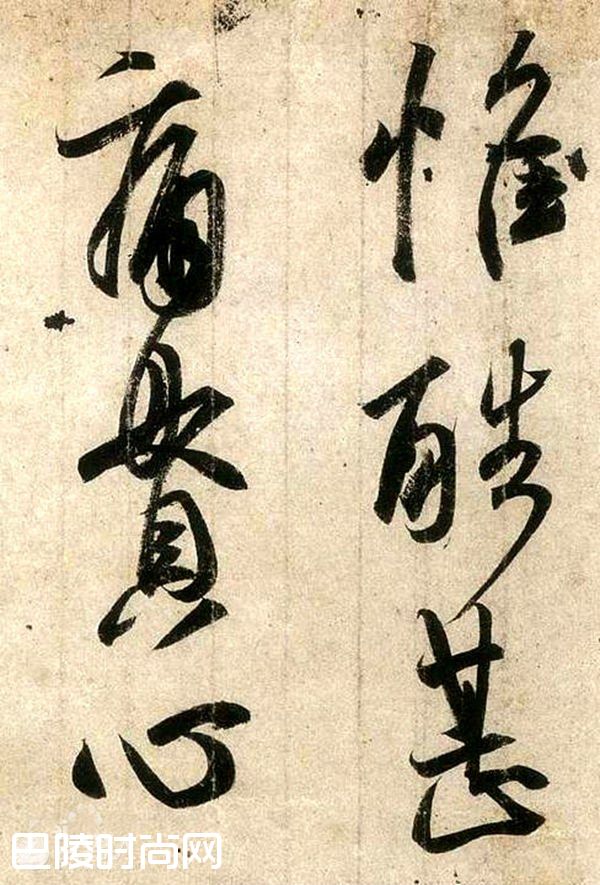 惟酷甚
痛貫心
巴陵时尚网